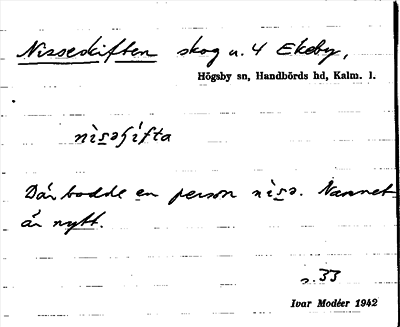 Nisseskiften skog u. 4 Ekeby,
Högsby sn, Handbörds hd, Kalm. l.
nìsəʃífta
Där bodde en person nìsə. Namnet
är nytt.
s. 33
Ivar Modéer 1942